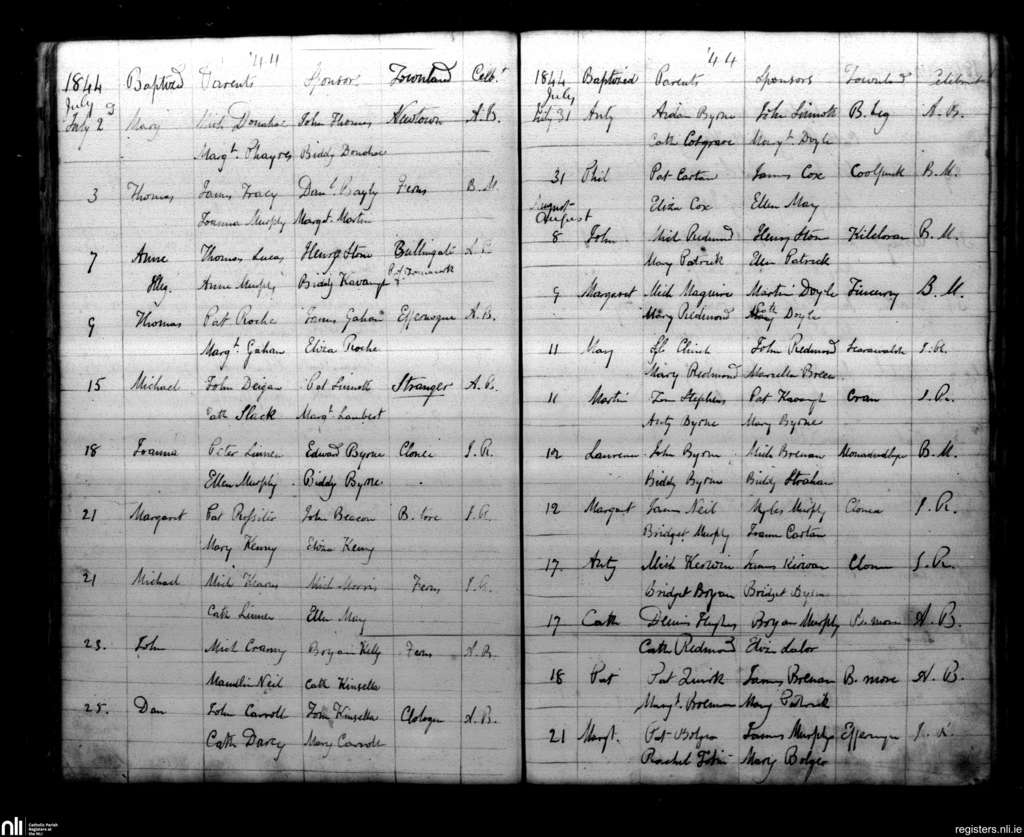 '44
1844 Baptized Parents Sponsors Townland Celbt
July
July 2d Mary Mich Donahoe John Thomas Newtown A.B.
Margt. Biddy Donohoe
3 Thomas James Tracy Danl. Bayly Ferns B.M.
Joanna Murphy Margt. Martin
7 Anne Thomas Lucas Henry Stone Bullingate
Illeg. Anne Murphy Biddy Kavanagh
9 Thomas Pat Roche James Gahan A.B.
Margt. Gahan Eliza Roche
15 Michael John Deigan Pat Sinnott Stranger A.R.
Cath Slack Margt. Lambert
18 Joanna Peter Edward Byrne Clonee J.R.
Ellen Murphy Biddy Byrne
21 Margaret Pat Rossiter John Beacon B. J.R.
Mary Kenny Eliza Kenny
21 Michael Mich Kearns Mich Morris Ferns J.R.
Cath Ellen May
23. John Mich Bryan Kelly Ferns A.B.
Maudlin Neil Cath Kinsella
25. Dan John Carroll John Kinsella Clologue A.B.
Cath Darcy Mary Carroll
'44
1844 Baptized Parents Sponsors Townland Celebrant
July
July 31 Anty Aidan Byrne John Sinnott B. beg A.B.
Cath Cosgrave Margt. Doyle
31 Phil Pat Cartan James Cox B.M.
August
August
Eliza Cox Ellen May
8 John Mich Redmond Henry Ston B.M.
Mary Patrick Ellen Patrick
9 Margaret Mich Maguire Martin Doyle B.M.
Mary Redmond Cath Doyle
11 Mary John Redmond Scarawalsh J.R.
Mary Redmond Marcella Breen
11 Martin Tom Stephens Pat Kavanagh Cran J.R.
Anty Byrne Mary Byrne
12 Laurence John Byrne Mich Brenan B.M.
Biddy Byrne Biddy Strahan
12 Margaret James Neil Myles Murphy Clonee J.R.
Bridget Murphy Joanna Cartan
17. Anty Mich Kerwin James Kirwan Clonee J.R.
Bridget Bryan Bridget
17 Cath Dennis Hughes Bryan Murphy B. more A.B.
Cath Redmond Eliza Lalor
18 Pat Pat Quirk James Brenan B. more A.B.
Margt. Brennan Mary Patrick
21 Margt. Pat Bolger James Murphy J.R.
Rachel Tobin Mary Bolger
nli Catholic Parish
Registers at
the NLI
registers.nli.ie